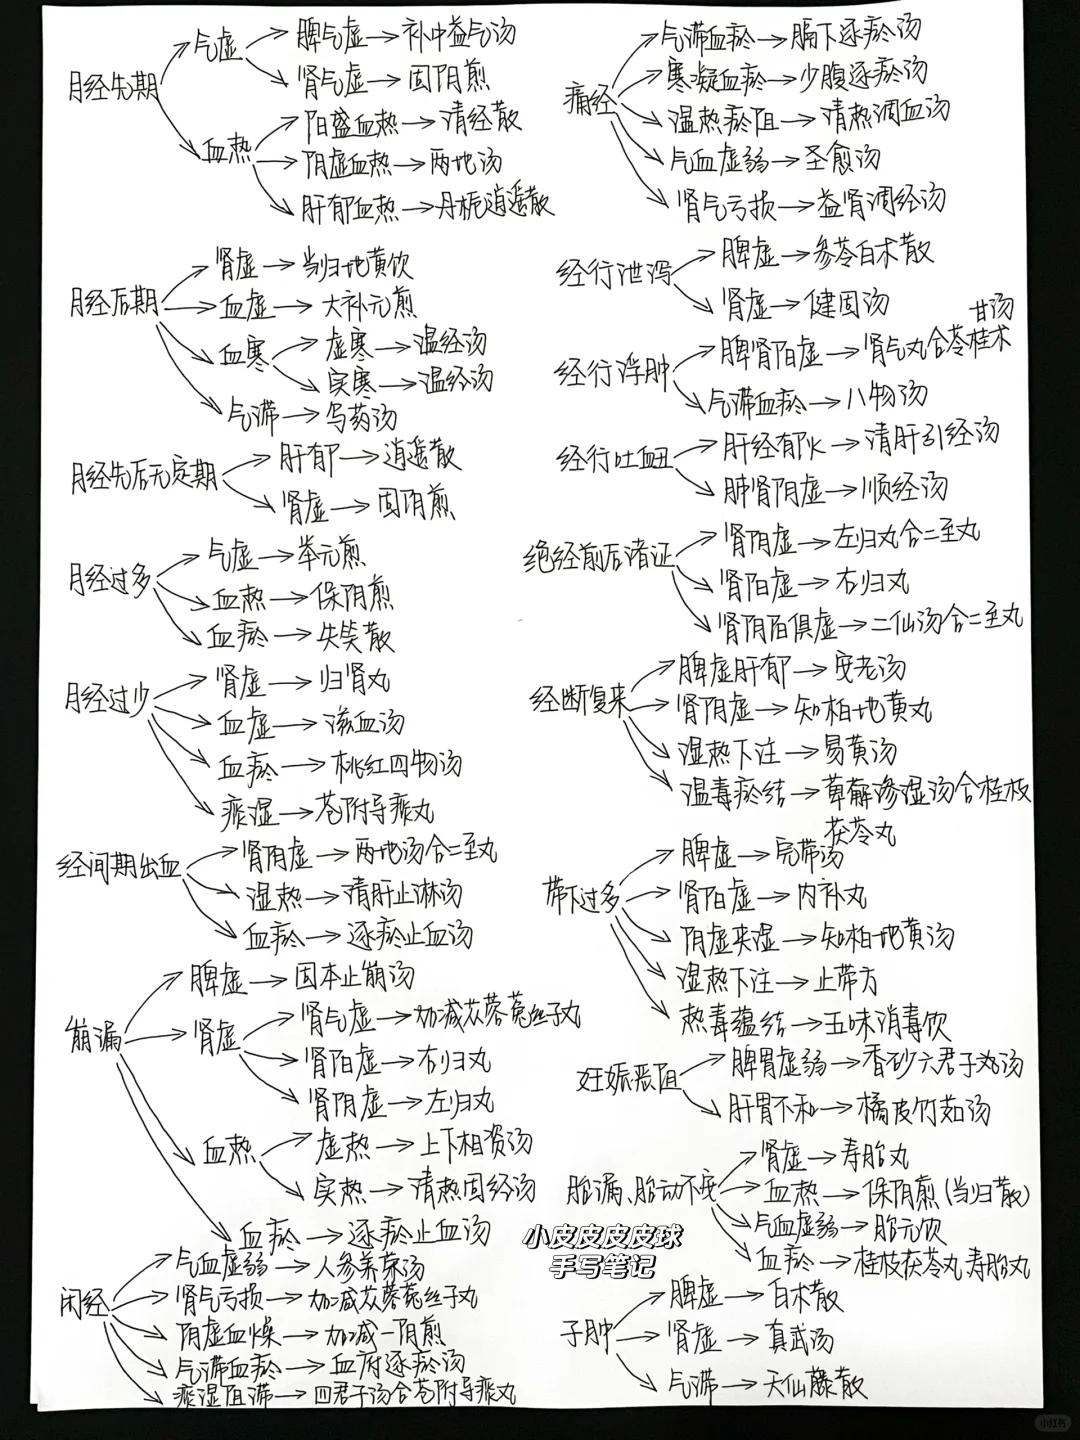 月经先期
气虚
脾气虚→补中益气汤
肾气虚→固阴煎
血热
阳盛血热→清经散
阴虚血热→两地汤
肝郁血热→丹栀逍遥散
月经后期
肾虚→当归地黄饮
血虚→大补元煎
血寒
虚寒→温经汤
实寒→温经汤
气滞→乌药汤
月经先后无定期
肝郁→逍遥散
肾虚→固阴煎
月经过多
气虚→举元煎
血热→保阴煎
血瘀→失笑散
月经过少
肾虚→归肾丸
血虚→滋血汤
血瘀→桃红四物汤
痰湿→苍附导痰丸
经间期出血
肾阴虚→两地汤合二至丸
湿热→清肝止淋汤
血瘀→逐瘀止血汤
崩漏
脾虚→固本止崩汤
肾虚
肾气虚→加减苁蓉菟丝子丸
肾阳虚→右归丸
肾阴虚→左归丸
血热
虚热→上下相资汤
实热→清热固经汤
血瘀→逐瘀止血汤
闭经
气血虚弱→人参养荣汤
肾气亏损→加减苁蓉菟丝子丸
阴虚血燥→加减一阴煎
气滞血瘀→血府逐瘀汤
痰湿阻滞→四君子汤合苍附导痰丸
痛经
气滞血瘀→膈下逐瘀汤
寒凝血瘀→少腹逐瘀汤
温热瘀阻→清热调血汤
气血虚弱→圣愈汤
肾气亏损→益肾调经汤
经行泄泻
脾虚→参苓白术散
肾虚→健固汤
经行浮肿
脾肾阳虚→肾气丸合苓桂术
甘汤
气滞血瘀→八物汤
经行吐衄
肝经郁火→清肝引经汤
肺肾阴虚→顺经汤
绝经前后诸证
肾阴虚→左归丸合二至丸
肾阳虚→右归丸
肾阴阳俱虚→二仙汤合二至丸
经断复来
脾虚肝郁→安老汤
肾阴虚→知柏地黄丸
湿热下注→易黄汤
温毒瘀结→萆薢渗湿汤合桂枝
茯苓丸
带下过多
脾虚→完带汤
肾阳虚→内补丸
阴虚夹湿→知柏地黄汤
湿热下注→止带方
热毒蕴结→五味消毒饮
妊娠恶阻
脾胃虚弱→香砂六君子丸汤
肝胃不和→橘皮竹茹汤
胎漏、胎动不安
肾虚→寿胎丸
血热→保阴煎(当归散)
气血虚弱→胎元饮
血瘀→桂枝茯苓丸寿胎丸
子肿
脾虚→白术散
肾虚→真武汤
气滞→天仙藤散
小皮皮皮皮球
手写笔记
小红书